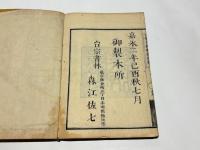 嘉永二年己酉秋七月
御製本所
台宗書林
森江佐七